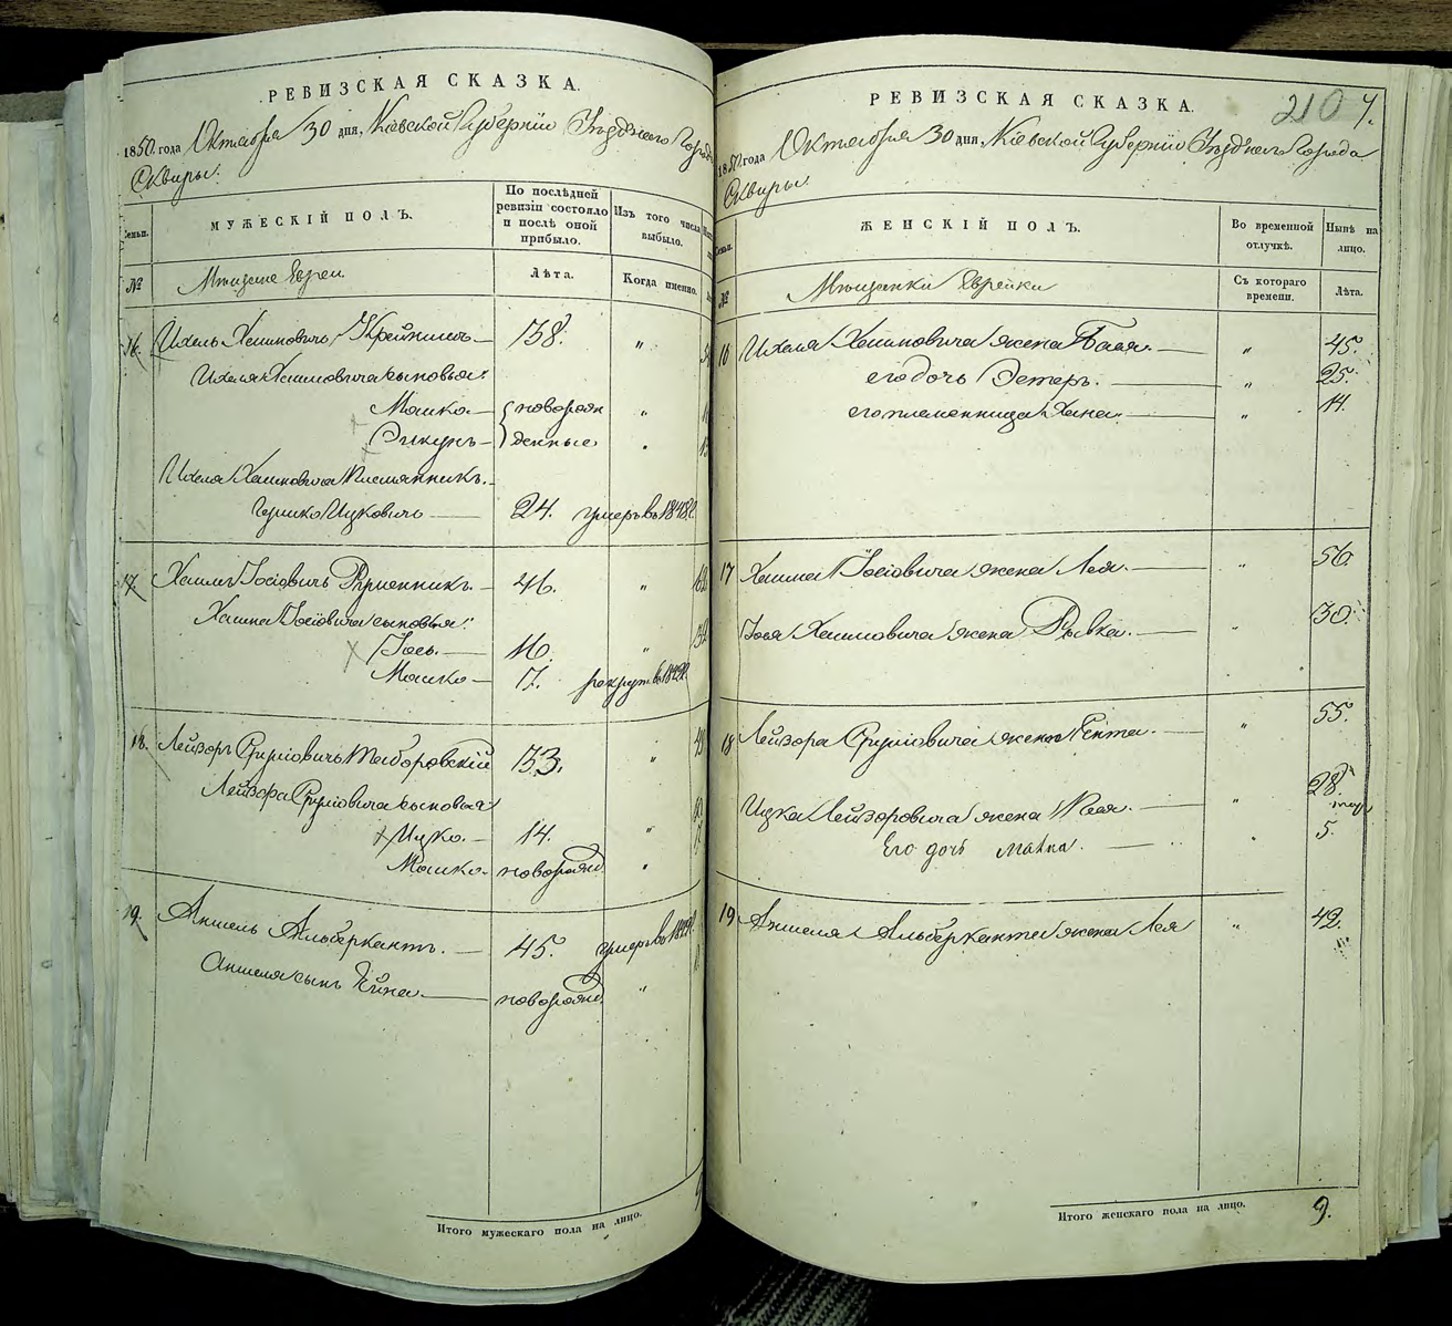 РЕВИЗСКАЯ СКАЗКА.
1850. года Октября 30 дня, Кіевской Губерніи Уѣзднаго Города
Сквиры.
Семьи.
МУЖЕСКІЙ ПОЛЪ.
По послѣдней ревизіи состояло и послѣ оной прибыло.
Изъ того числа выбыло.
№
Мѣщане Евреи.
Лѣта.
Когда именно.
16. Ихель Хаимовичъ 38. "
Ихеля Хаимовича сыновья:
Мошко новорож "
денные "
Ихеля Хаимовича Племянникъ.
Гершко Ицковичъ 24. умеръ въ 1848 г.
17. Хаимъ Іосіовичъ 46. "
Хаима Іосіовича сыновья:
Іось. 16. "
Мошко 17. рекрут. въ
18. Лейзоръ Сруліовичъ Таборовскій 33. "
Лейзора Сруліовича сыновья
Ицко. 14. "
Мошко. новорожд. "
19. Аншель Альберкантъ. 45. умеръ въ
Аншеля сынъ новорожд. "
Итого мужескаго пола на лицо.
РЕВИЗСКАЯ СКАЗКА.
210
1850. года Октября 30 дня, Кіевской Губерніи Уѣзднаго Города
Сквиры.
Семьи.
ЖЕНСКІЙ ПОЛЪ.
Во временной отлучкѣ.
Нынѣ на лицо.
№
Мѣщанки Еврейки
Съ котораго времени.
Лѣта.
16 Ихеля Хаимовича жена Бася. " 45.
его дочь Эстеръ. " 25.
его племенница Хана. " 14.
17 Хаима Іосіовича жена Лея. " 56.
Іося Хаимовича жена Рывка. " 30.
18 Лейзора Сруліовича жена Гента. " 55.
Ицка Лейзоровича жена " 28.
Его дочь Малка. " 5.
19 Аншеля Альберканта жена Лея " 42.
Итого женскаго пола на лицо. 9.